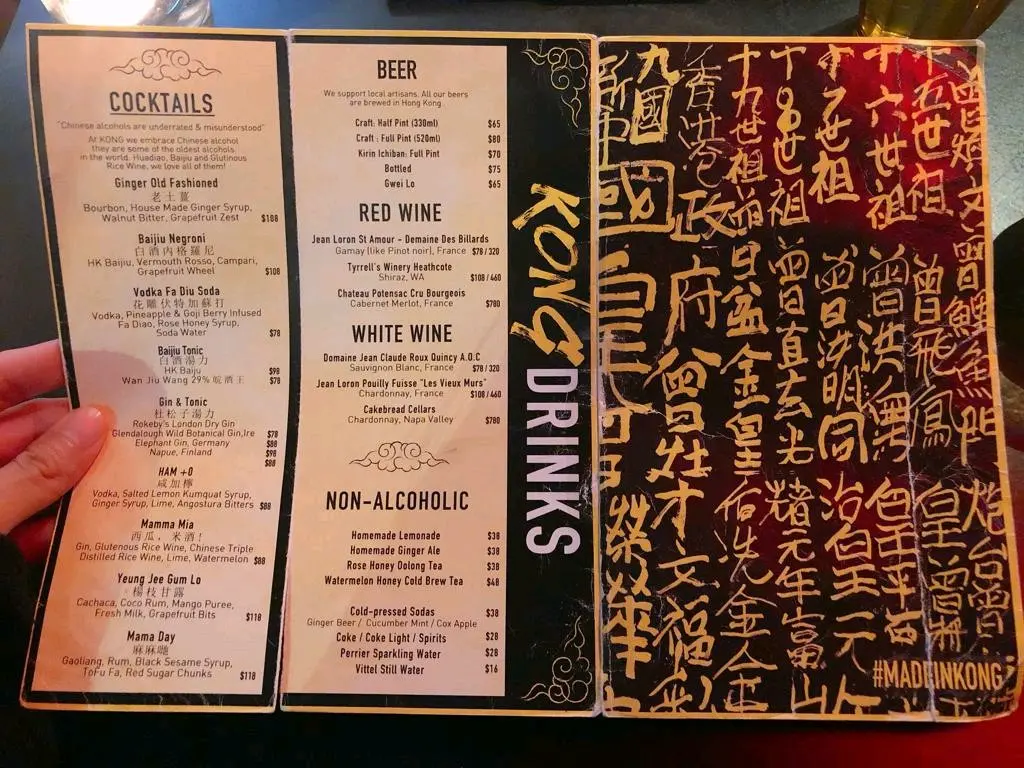 COCKTAILS
"Chinese alcohols are underrated & misunderstood"
At KONG we embrace Chinese alcohol
they are some of the oldest alcohols
in the world. Huadiao, Baijiu and Glutinous
Rice Wine, we love all of them!
Ginger Old Fashioned
老土薑
Bourbon, House Made Ginger Syrup,
Walnut Bitter, Grapefruit Zest $108
Baijiu Negroni
白酒內格羅尼
HK Baijiu, Vermouth Rosso, Campari,
Grapefruit Wheel $108
Vodka Fa Diu Soda
花雕伏特加蘇打
Vodka, Pineapple & Goji Berry Infused
Fa Diao, Rose Honey Syrup,
Soda Water $78
Baijiu Tonic
白酒湯力
HK Baiju $98
Wan Jiu Wang 29% 皖酒王 $78
Gin & Tonic
杜松子湯力
Rokeby's London Dry Gin $78
Glendalough Wild Botanical Gin,Ire $88
Elephant Gin, Germany $98
Napue, Finland $88
HAM +0
咸加檸
Vodka, Salted Lemon Kumquat Syrup,
Ginger Syrup, Lime, Angostura Bitters $88
Mamma Mia
西瓜，米酒!
Gin, Glutenous Rice Wine, Chinese Triple
Distilled Rice Wine, Lime, Watermelon $88
Yeung Jee Gum Lo
楊枝甘露
Cachaca, Coco Rum, Mango Puree,
Fresh Milk, Grapefruit Bits $118
Mama Day
麻麻哋
Gaoliang, Rum, Black Sesame Syrup,
ToFu Fa, Red Sugar Chunks $118
BEER
We support local artisans. All our beers
are brewed in Hong Kong.
Craft: Half Pint (330ml) $65
Craft : Full Pint (520ml) $80
Kirin Ichiban: Full Pint $70
Bottled $75
Gwei Lo $65
RED WINE
Jean Loron St Amour - Demaine Des Billards
Gamay (like Pinot noir), France $78 / 320
Tyrrell's Winery Heathcote
Shiraz, WA $108 / 460
Chateau Potensac Cru Bourgeois
Cabernet Merlot, France $780
WHITE WINE
Domaine Jean Claude Roux Quincy A.O.C
Sauvignon Blanc, France $78 / 320
Jean Loron Pouilly Fuisse "Les Vieux Murs"
Chardonnay, France $108 / 460
Cakebread Cellars
Chardonnay, Napa Valley $780
NON-ALCOHOLIC
Homemade Lemonade $38
Homemade Ginger Ale $38
Rose Honey Oolong Tea $38
Watermelon Honey Cold Brew Tea $48
Cold-pressed Sodas $38
Ginger Beer / Cucumber Mint / Cox Apple
Coke / Coke Light / Spirits $28
Perrier Sparkling Water $28
Vittel Still Water $16
KONG DRINKS
九國
新中國
香港
政府曾灶才文福
十九世祖
世祖曾日直去光緒元年富山
世祖曾日洪明同治皇
十六世祖
十五世祖曾飛
文曾鯉魚門
#MADEINKONG